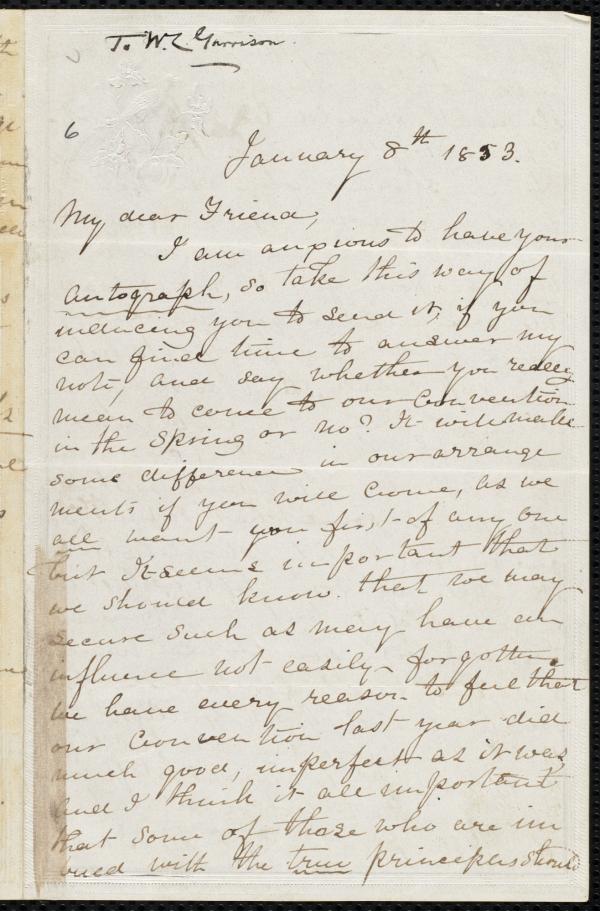 To W. L. Garrison.
6
January 8th 1853.
My dear Friend,
I am anxious to have your
autograph, so take this way of
inducing you to send it, if you
can find time to answer my
note, and say whether you really
mean to come to our Convention
in the Spring or no? It will make
some difference in our arrange
ments if you will come, as we
all want you first of any one
but it seems important that
we should know that we may
secure such as may have an
influence not easily forgotten.
We have every reason to feel that
our Convention last year did
much good, imperfect as it was,
and I think it all important
that some of those who are im
bued with the true principles should